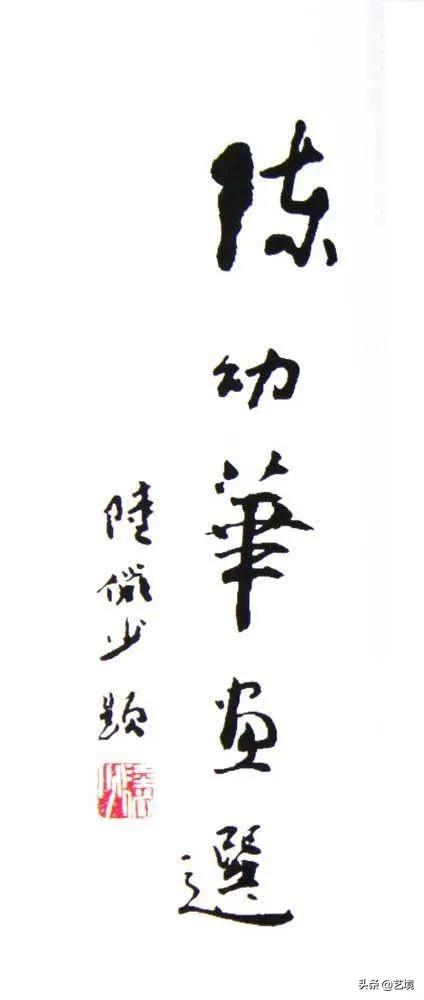 陈幼華画選
陸儼少題
头条 @艺境